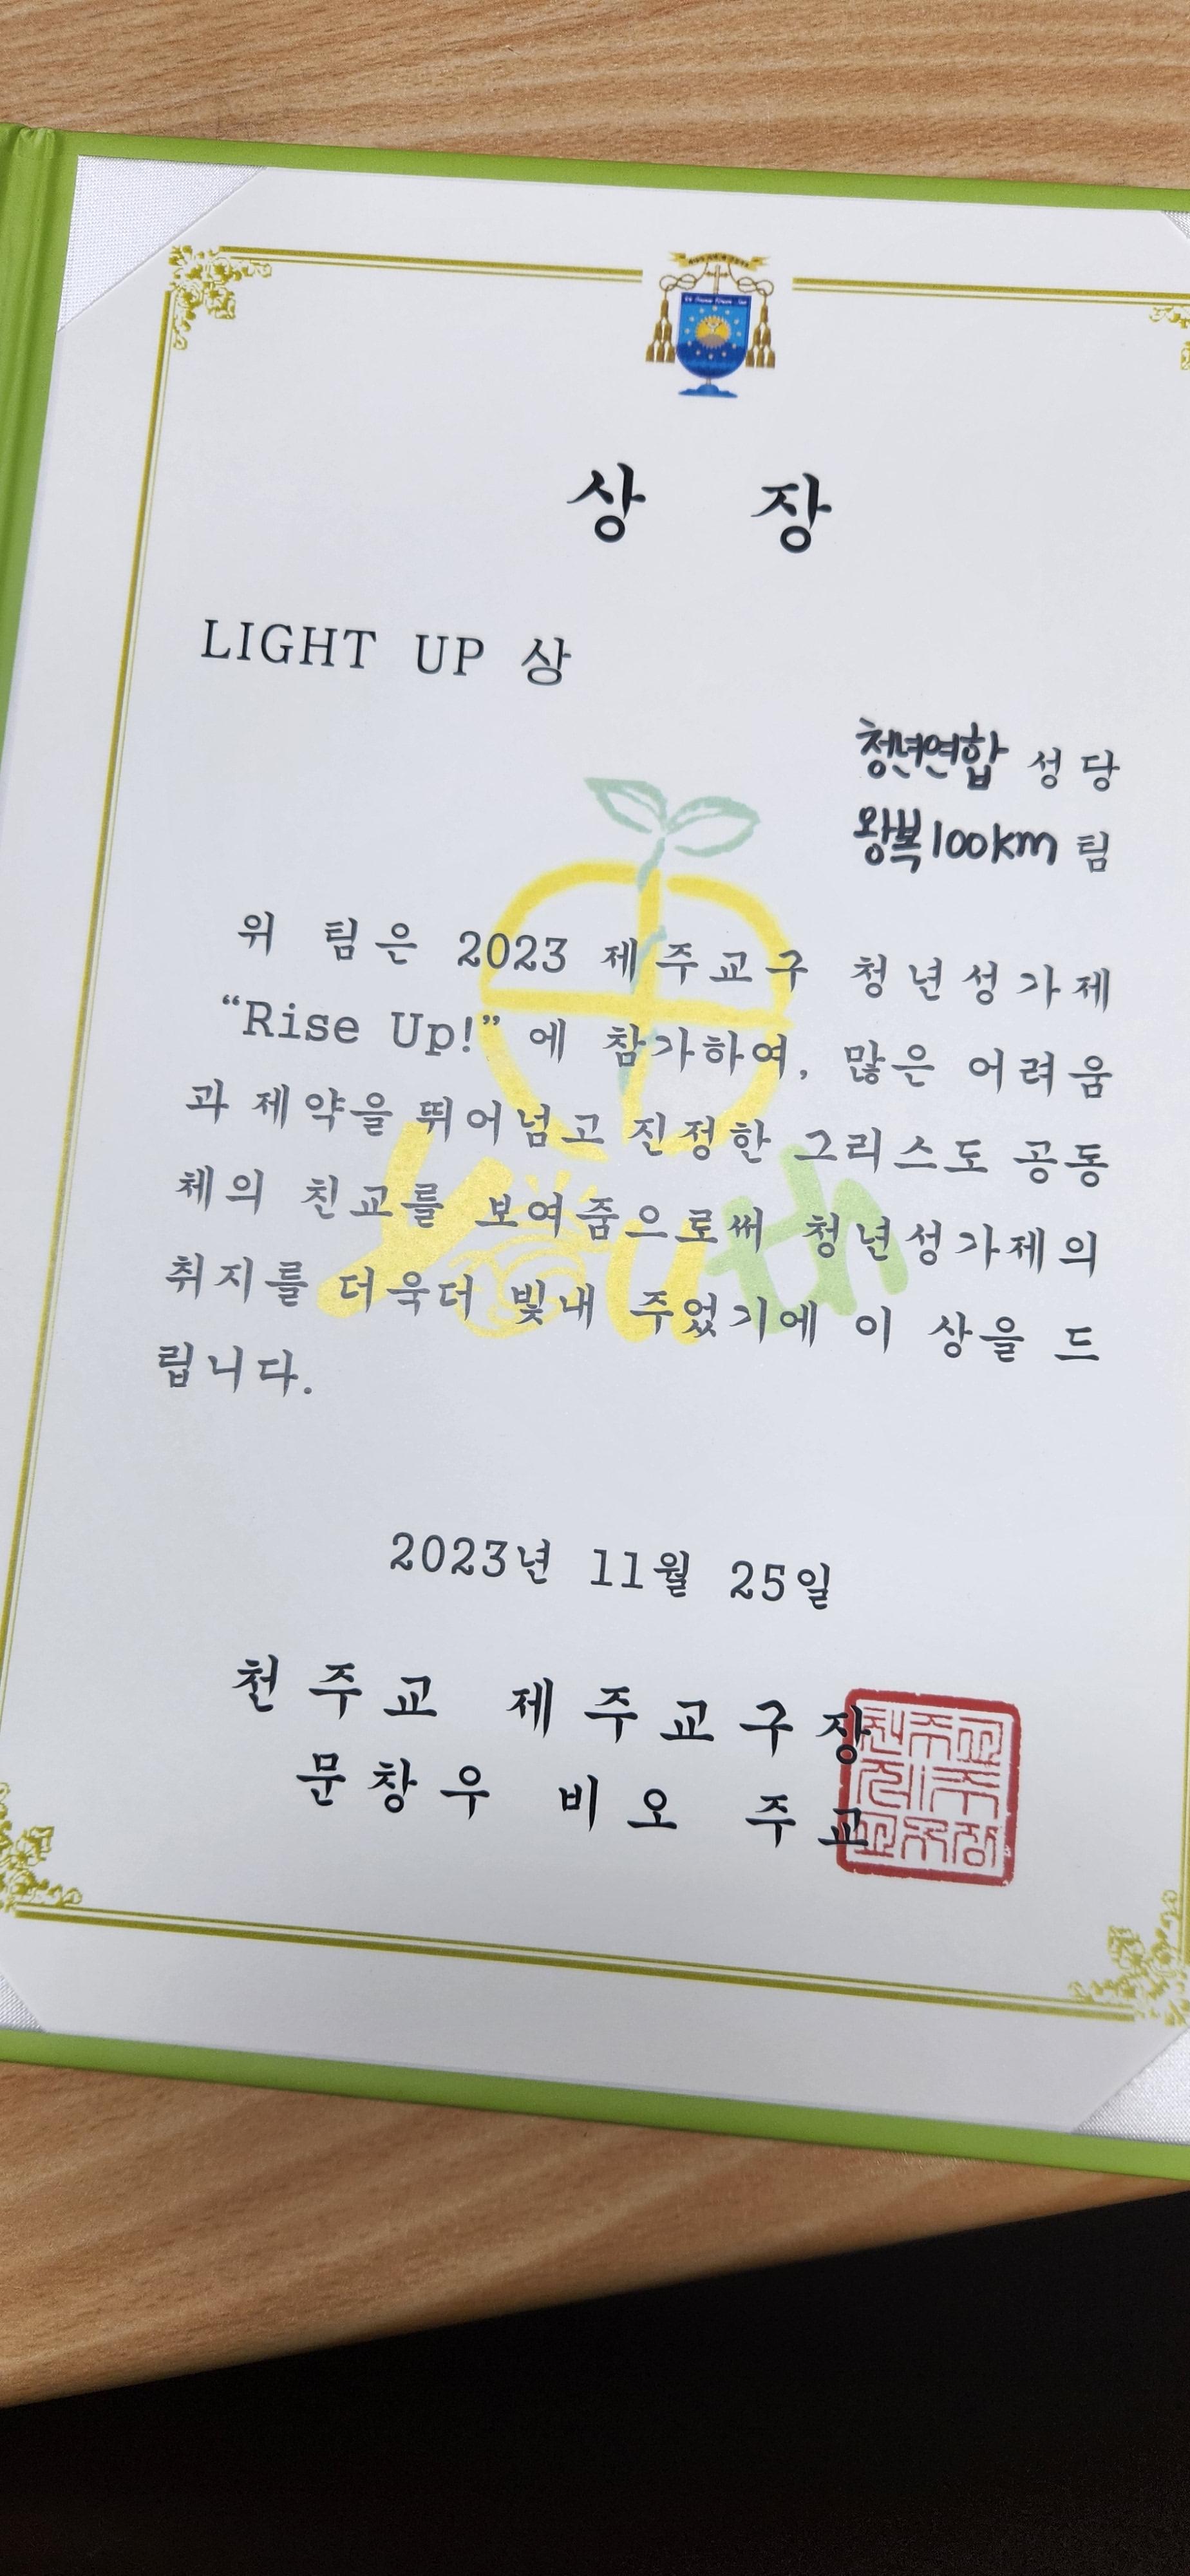 상 장
LIGHT UP 상
청년연합 성당
왕복100km 팀
위 팀은 2023 제주교구 청년성가제
“Rise Up!” 에 참가하여, 많은 어려움
과 제약을 뛰어넘고 진정한 그리스도 공동
체의 친교를 보여줌으로써 청년성가제의
취지를 더욱더 빛내 주었기에 이 상을 드
립니다.
Youth
2023년 11월 25일
천주교 제주교구장
문창우 비오 주교
천주교
제주
교구장